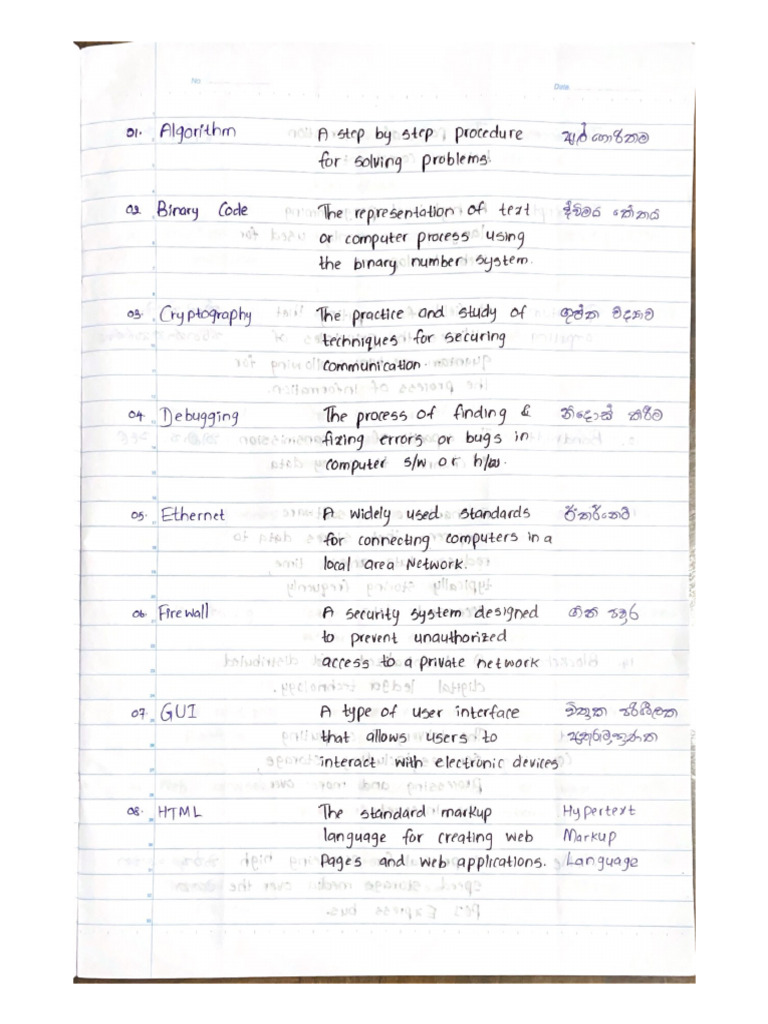 No
Date
01. Algorithm A step by step procedure ඇල්ගොරිතම
for solving problems.
02 Binary Code The representation of text ද්විමය කේතය
or computer process using
the binary number system.
03. Cryptography The practice and study of ගුප්ත
techniques for securing
communication.
04. Debugging The process of finding & නිදොස් කිරීම
fixing errors or bugs in
computer s/w or h/w.
05. Ethernet A widely used standards ඊතර්නෙට්
for connecting computers in a
local area Network.
06. Firewall A security system designed ගිනි පවුර
to prevent unauthorized
access to a private network
07. GUI A type of user interface චිත්‍රක පරිශීලක
that allows users to අතුරුමුහුණත
interact with electronic devices
08. HTML The standard markup Hypertext
language for creating web Markup
Pages and web applications. Language